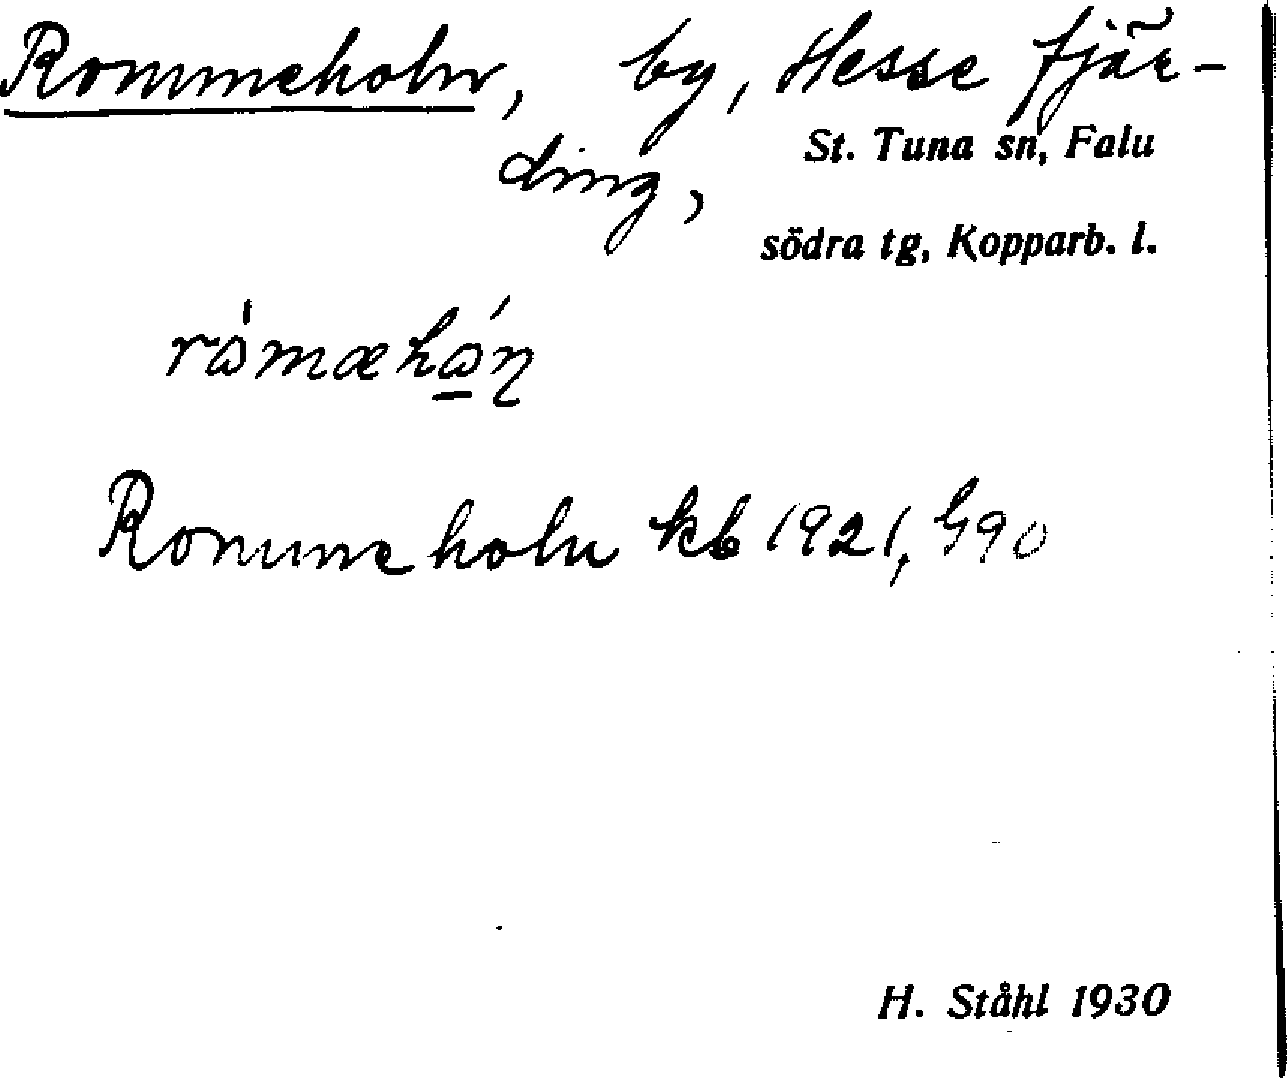 Rommeholn, by, Hesse fjär-
ding,
St. Tuna sn, Falu
södra tg, Kopparb. l.
Rommeholn kb 1921, 590
H. Ståhl 1930